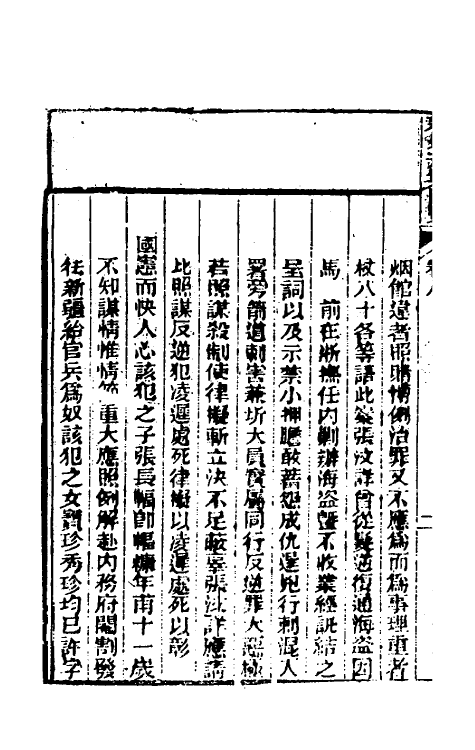 烟館違者照賭博例治罪又不應為而為事理重者
杖八十各等語此案張汶詳曾從髮逆復通海盜因
馬　前在浙撫任內剿辦海盜暨不收業經訊結之
呈詞以及示禁小押膽敢蓄怨成仇逞兇行刺混入
署旁箭道刺害兼圻大員實屬同行反逆罪大惡極
若照謀殺制使律擬斬立決不足蔽辜張汶詳應請
比照謀反逆犯凌遲處死律擬以凌遲處死以彰
國憲而快人心該犯之子張長幅即幅糠年甫十一歲
不知謀情惟情節重大應照例解赴內務府閹割發
往新疆給官兵為奴該犯之女寶珍秀珍均已許字
卷八
二